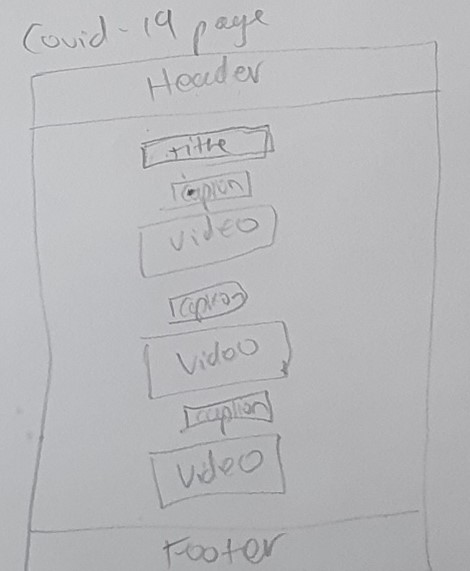 Covid-19 page
Header
title
caption
video
caption
video
caption
video
Footer